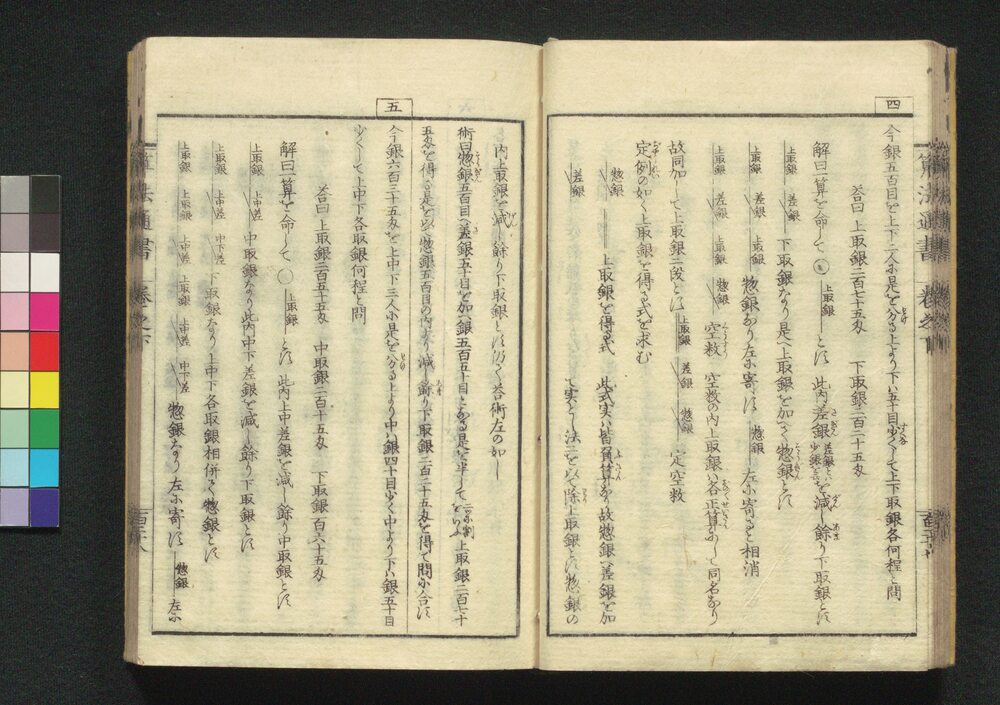 四
今銀五百目を上下二人に是を分る上より下ハ五十目少くして上下取銀各何程と問
答曰 上取銀二百七十五匁 下取銀二百二十五匁
解曰一算を命して〇 上取銀 とす 此内差銀を減し餘り下取銀とす
上取銀 差銀 下取銀なり是へ上取銀を加へて惣銀とす
上取銀 差銀 上取銀 惣銀なり左に寄す 惣銀 左に寄ると相消
上取銀 差銀 上取銀 惣銀 空数 空数の内上取銀ハ各正算にして同名なり
故同加して上取銀二段とす 上取銀 差銀 惣銀 定空数
定例の如く上取銀を得る式を求む
惣銀 上取銀を得る式 此式実ハ皆負算なり故惣銀へ差銀を加
差銀 て実とし法二を以て除上取銀とす惣銀の
五
内上取銀を減し餘り下取銀とす仍て答術左の如し
術曰惣銀五百目へ差銀五十目を加へ銀五百五十目となる是を半して 上取銀二百七十
五匁を得る是を以惣銀五百目の内より減し餘り下取銀二百二十五匁を得て問に合す
今銀六百三十五匁を上中下三人に是を分る上より中ハ銀四十目少く中より下ハ銀五十目
少くして上中下各取銀何程と問
答曰 上取銀二百五十五匁 中取銀二百十五匁 下取銀百六十五匁
解曰一算を命して〇 上取銀 とす 此内上中差銀を減し餘り中取銀とす
上取銀 上中差 中取銀なり此内中下差銀を減し餘り下取銀とす
上取銀 上中差 中下差 下取銀なり上中下各取銀相併て惣銀とす
上取銀 上取銀 上中差 上取銀 上中差 中下差 惣銀なり左に寄す 惣銀 左に
算法通書 巻之下